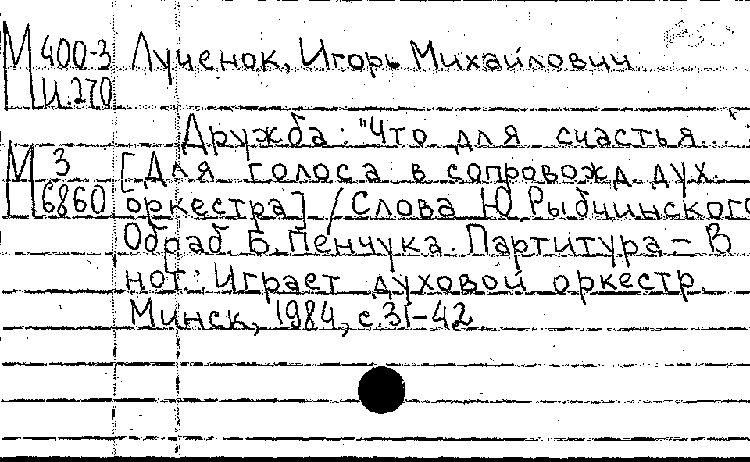 М 400-3 Лученок, Игорь Михайлович
И.270
Дружба: "Что для счастья..."
М 3 [Для голоса в сопровожд. дух.
6860 оркестра] / Слова Ю Рыбчинского
Обраб. Б. Пенчука. Партитура – В
нот.: Играет духовой оркестр.
Минск, 1984, с.31-42